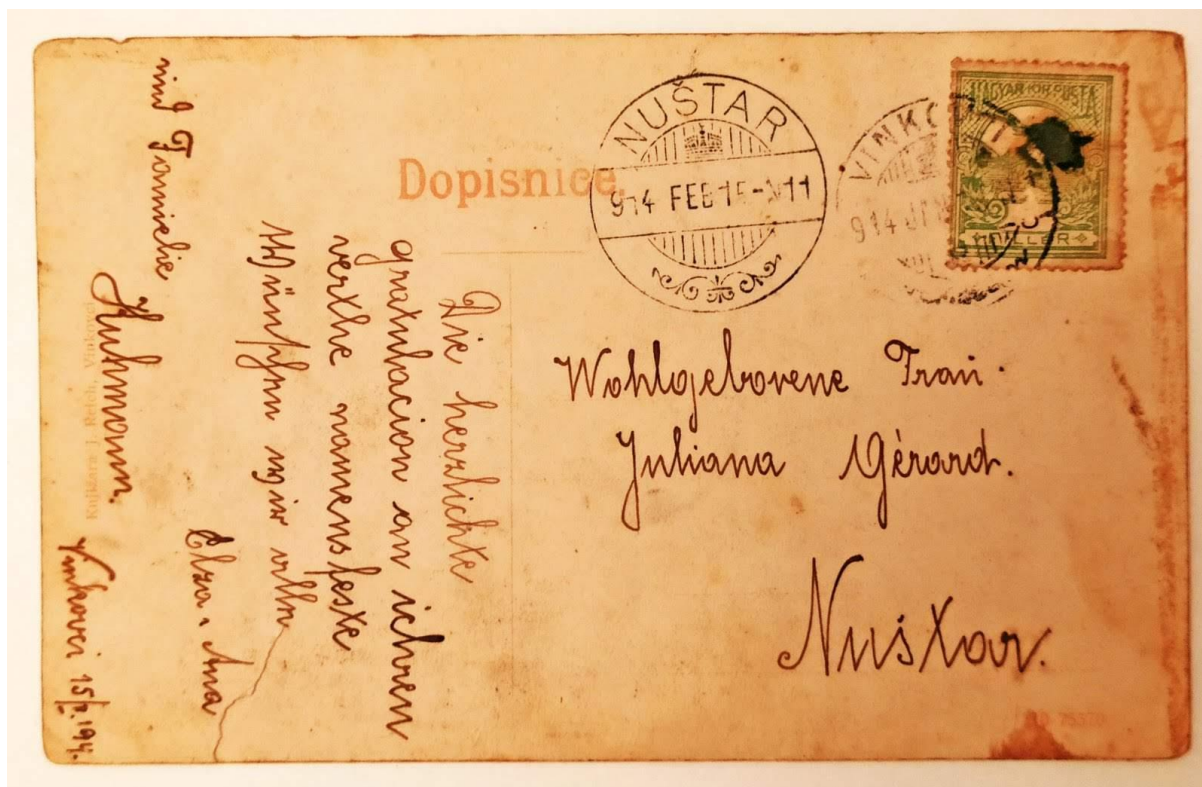 Dopisnice.
NUŠTAR
914 FEB 15 - N 11
VINKOVCI
914
MAGYAR KIR. POSTA
FILLÉR
Wohlgeborene Frau.
Juliana Gérard.
Nuštar.
Die herzlichte
gratulacion an ichren
werthe namensfeste
Wünschen wir alle
Elza, Ana
und Familie
Kuhmann.
Vinkovci 15/2. 1914.
Knjižara J. Reich, Vinkovci